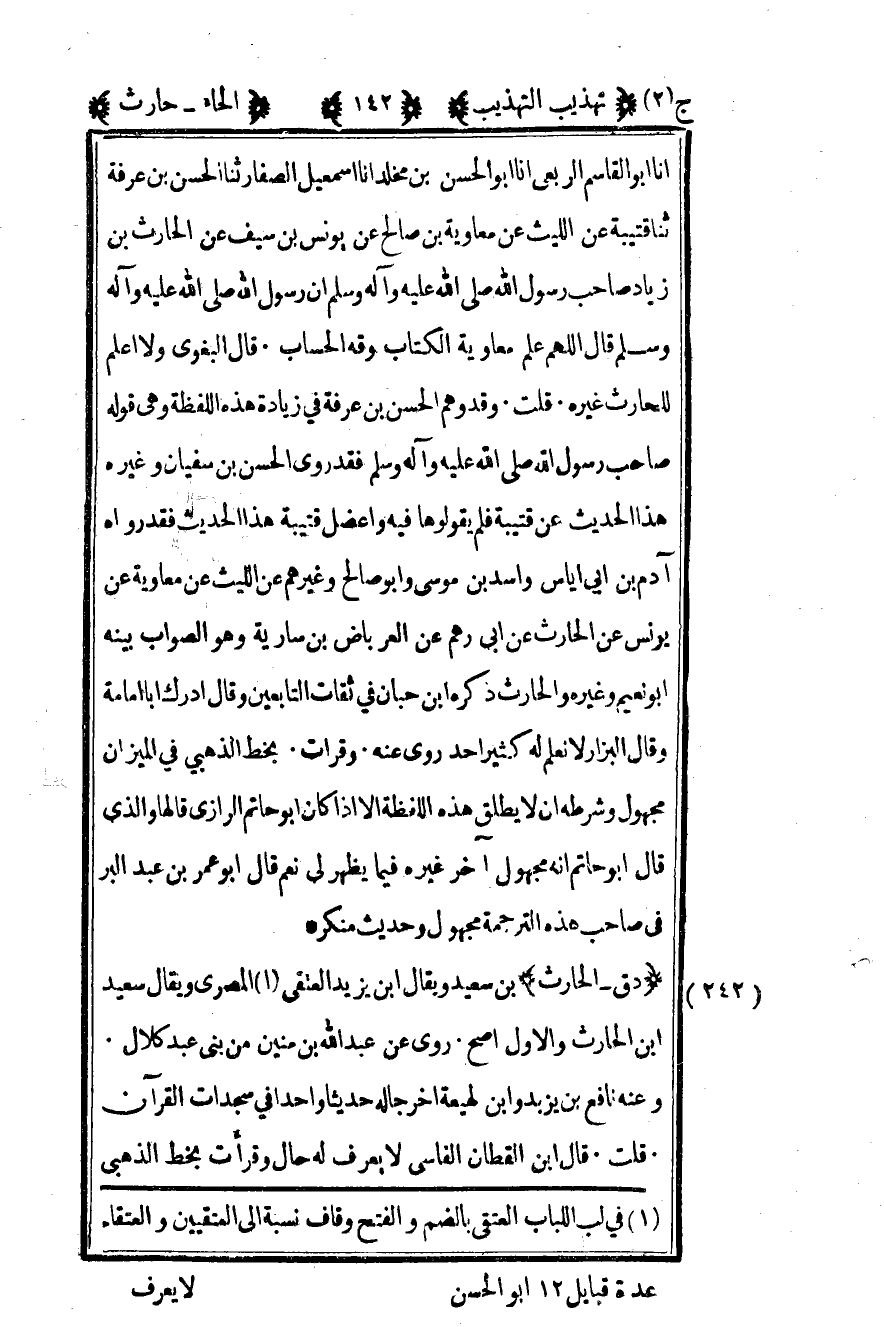 ج(٢) ﴿ تهذيب التهذيب ﴾ ﴿ ١٤٢ ﴾ ﴿ الحاء ـ حارث ﴾
انا ابو القاسم الربعى انا ابو الحسن بن مخلد انا اسمعيل الصفار ثنا الحسن بن عرفة
ثنا قتيبة عن الليث عن معاوية بن صالح عن يونس بن سيف عن الحارث بن
زياد صاحب رسول الله صلى الله عليه وآله وسلم ان رسول الله صلى الله عليه وآله
وسلم قال اللهم علم معاوية الكتاب وقه الحساب ٠ قال البغوى ولا اعلم
للحارث غيره ٠ قلت ٠ وقد وهم الحسن بن عرفة في زيادة هذه اللفظة وهى قوله
صاحب رسول الله صلى الله عليه وآله وسلم فقد روى الحسن بن سفيان وغيره
هذا الحديث عن قتيبة فلم يقولوها فيه واعضل قتيبة هذا الحديث فقد رواه
آدم بن ابي اياس واسد بن موسى وابو صالح وغيرهم عن الليث عن معاوية عن
يونس عن الحارث عن ابى رهم عن العرباض بن سارية وهو الصواب بينه
ابو نعيم وغيره والحارث ذكره ابن حبان في ثقات التابعين وقال ادرك ابا امامة
وقال البزار لا نعلم له كثير احد روى عنه ٠ وقرات ٠ بخط الذهبي في الميزان
مجهول وشرطه ان لا يطلق هذه اللفظة الا اذا كان ابو حاتم الرازى قالها والذي
قال ابو حاتم انه مجهول آخر غيره فيما يظهر لى نعم قال ابو عمر بن عبد البر
فى صاحب هذه الترجمة مجهول وحديث منكر *
﴿ دق ـ الحارث ﴾ بن سعيد ويقال ابن يزيد العتقى (١) المصرى ويقال سعيد (٢٤٢)
ابن الحارث والاول اصح ٠ روى عن عبد الله بن منين من بنى عبد كلال ٠
وعنه نافع بن يزيد وابن لهيعة اخرجا له حديثا واحدا في سجدات القرآن
٠ قلت ٠ قال ابن القطان الفاسى لا يعرف له حال وقرأت بخط الذهبى
(١) في لب اللباب العتقى بالضم و الفتح وقاف نسبة الى العتقيين و العتقاء
عدة قبايل ١٢ ابو الحسن لا يعرف